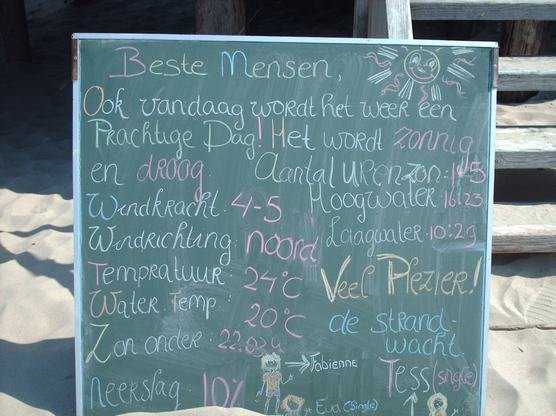 Beste Mensen,
Ook vandaag wordt het weer een
Prachtige Dag! Het wordt zonnig
en droog. Aantal uren zon: 15
Windkracht: 4-5 Hoogwater 16:23
Windrichting: noord Laagwater 10:29
Tempratuur 24°C Veel Plezier!
Water Temp: 20°C
de strand-
wacht
Zon onder: 22:03u
→ Fabienne
Tess (single)
neerslag 10%
← Eva (single)